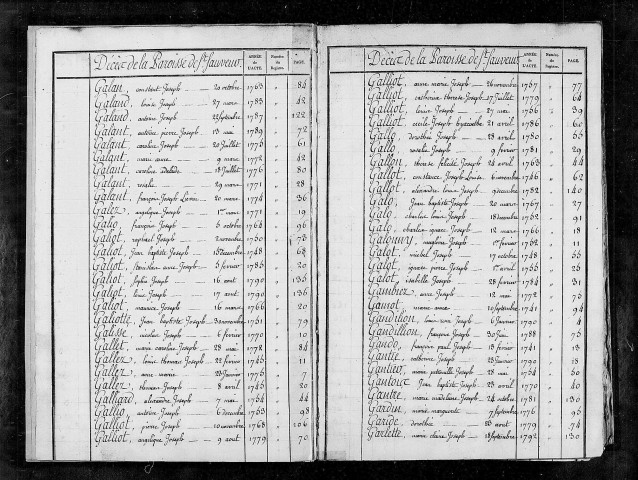 Décèz de la Paroisse de St. Sauveur.
ANNÉE de L'ACTE. Numéro du Registre. PAGE.
Galan, constant Joseph 20 octobre 1763 84
Galand, louis Joseph 27 mars 1783 42
Galand, antoine Joseph 22 septembre 1787 122
Galant, antoine pierre Joseph 13 mai 1789 72
Galant, caroline Joseph 20 Juillet 1775 61
Galant, marie anne 9 mars 1772 42
Galant, caroline 18 Juillet 1776 80
Galant, rosalie 29 mars 1771 28
Galant, françois Joseph 20 mars 1774 36
Galez, angelique Joseph 1er mars 1771 19
Galio, françoise Joseph 5 octobre 1764 96
Galiot, raphael Joseph 2 novembre 1750 73
Galiot, Jean baptiste Joseph 1748 68
Galiot, anne Joseph 5 fevrier 1785 20
Galiot, Sophie Joseph 16 aout 1790 135
Galiot, louis Joseph 17 aout 1790 136
Galiot, maurice Joseph 16 mars 1766 20
Galiotte, Jean baptiste Joseph 30 1751 79
Galisse, nicolas Joseph 6 fevrier 1770 10
Gallet, marie caroline Joseph 28 mai 1778 84
Gallez, louis thomas Joseph 22 fevrier 1746 11
Gallez, anne marie 23 Janvier 1776 7
Gallez, thomas Joseph 8 avril 1746 20
Galliard, alexandre Joseph 7 mai 1754 44
Gallio, antoine Joseph 6 decembre 1753 98
Galliot, pierre Joseph 10 novembre 1768 106
Galliot, angelique Joseph 9 aout 1779 70
Décèz de la Paroisse de St. Sauveur
ANNÉE de L'ACTE. Numéro du Registre. PAGE.
Galliot, anne marie Joseph 26 novembre 1757 77
Galliot, catherine therese Joseph 17 Juillet 1779 64
Galliot, louise Joseph 27 mai 1756 39
Galliot, cecile Joseph hyacinthe 21 avril 1786 60
Gallo, dorothée Joseph 28 avril 1780 55
Gallo, rosalie Joseph 9 fevrier 1781 29
Gallon, therese felicité Joseph 24 avril 1763 44
Gallot, constance Joseph Louise 6 novembre 1746 62
Gallot, alexandre louis Joseph 9 decembre 1782 140
Galo, Jean baptiste Joseph 20 mars 1767 27
Galo, charles louis Joseph 18 decembre 1752 91
Galo, charles ignace Joseph 12 mars 1766 18
Galonny, Joseph 1er fevrier 1752 11
Galot, michel Joseph 17 octobre 1748 55
Galot, ignace pierre Joseph 1er avril 1755 25
Galot, isabelle Joseph 28 fevrier 1784 31
Gambiez, anne Joseph 12 mai 1772 75
Gamot, marie anne 10 septembre 1741 94
Gandilion, louis Joseph 6 Janvier 1790 4
Gandillon, françoise Joseph 30 Juin 1788 75
Gando, françois paul Joseph 18 fevrier 1741 13
Gantié, catherine Joseph 23 Janvier 1790 18
Gantier, marie petronille Joseph 28 mai 1754 50
Gantouz, Jean baptiste Joseph 23 avril 1770 40
Gantre, marie madelaine Joseph 24 octobre 1781 130
Gardin, marie marguerite 7 septembre 1776 95
Garde, dorothée 23 aout 1779 74
Garlette, marie claire Joseph 18 septembre 1792 130